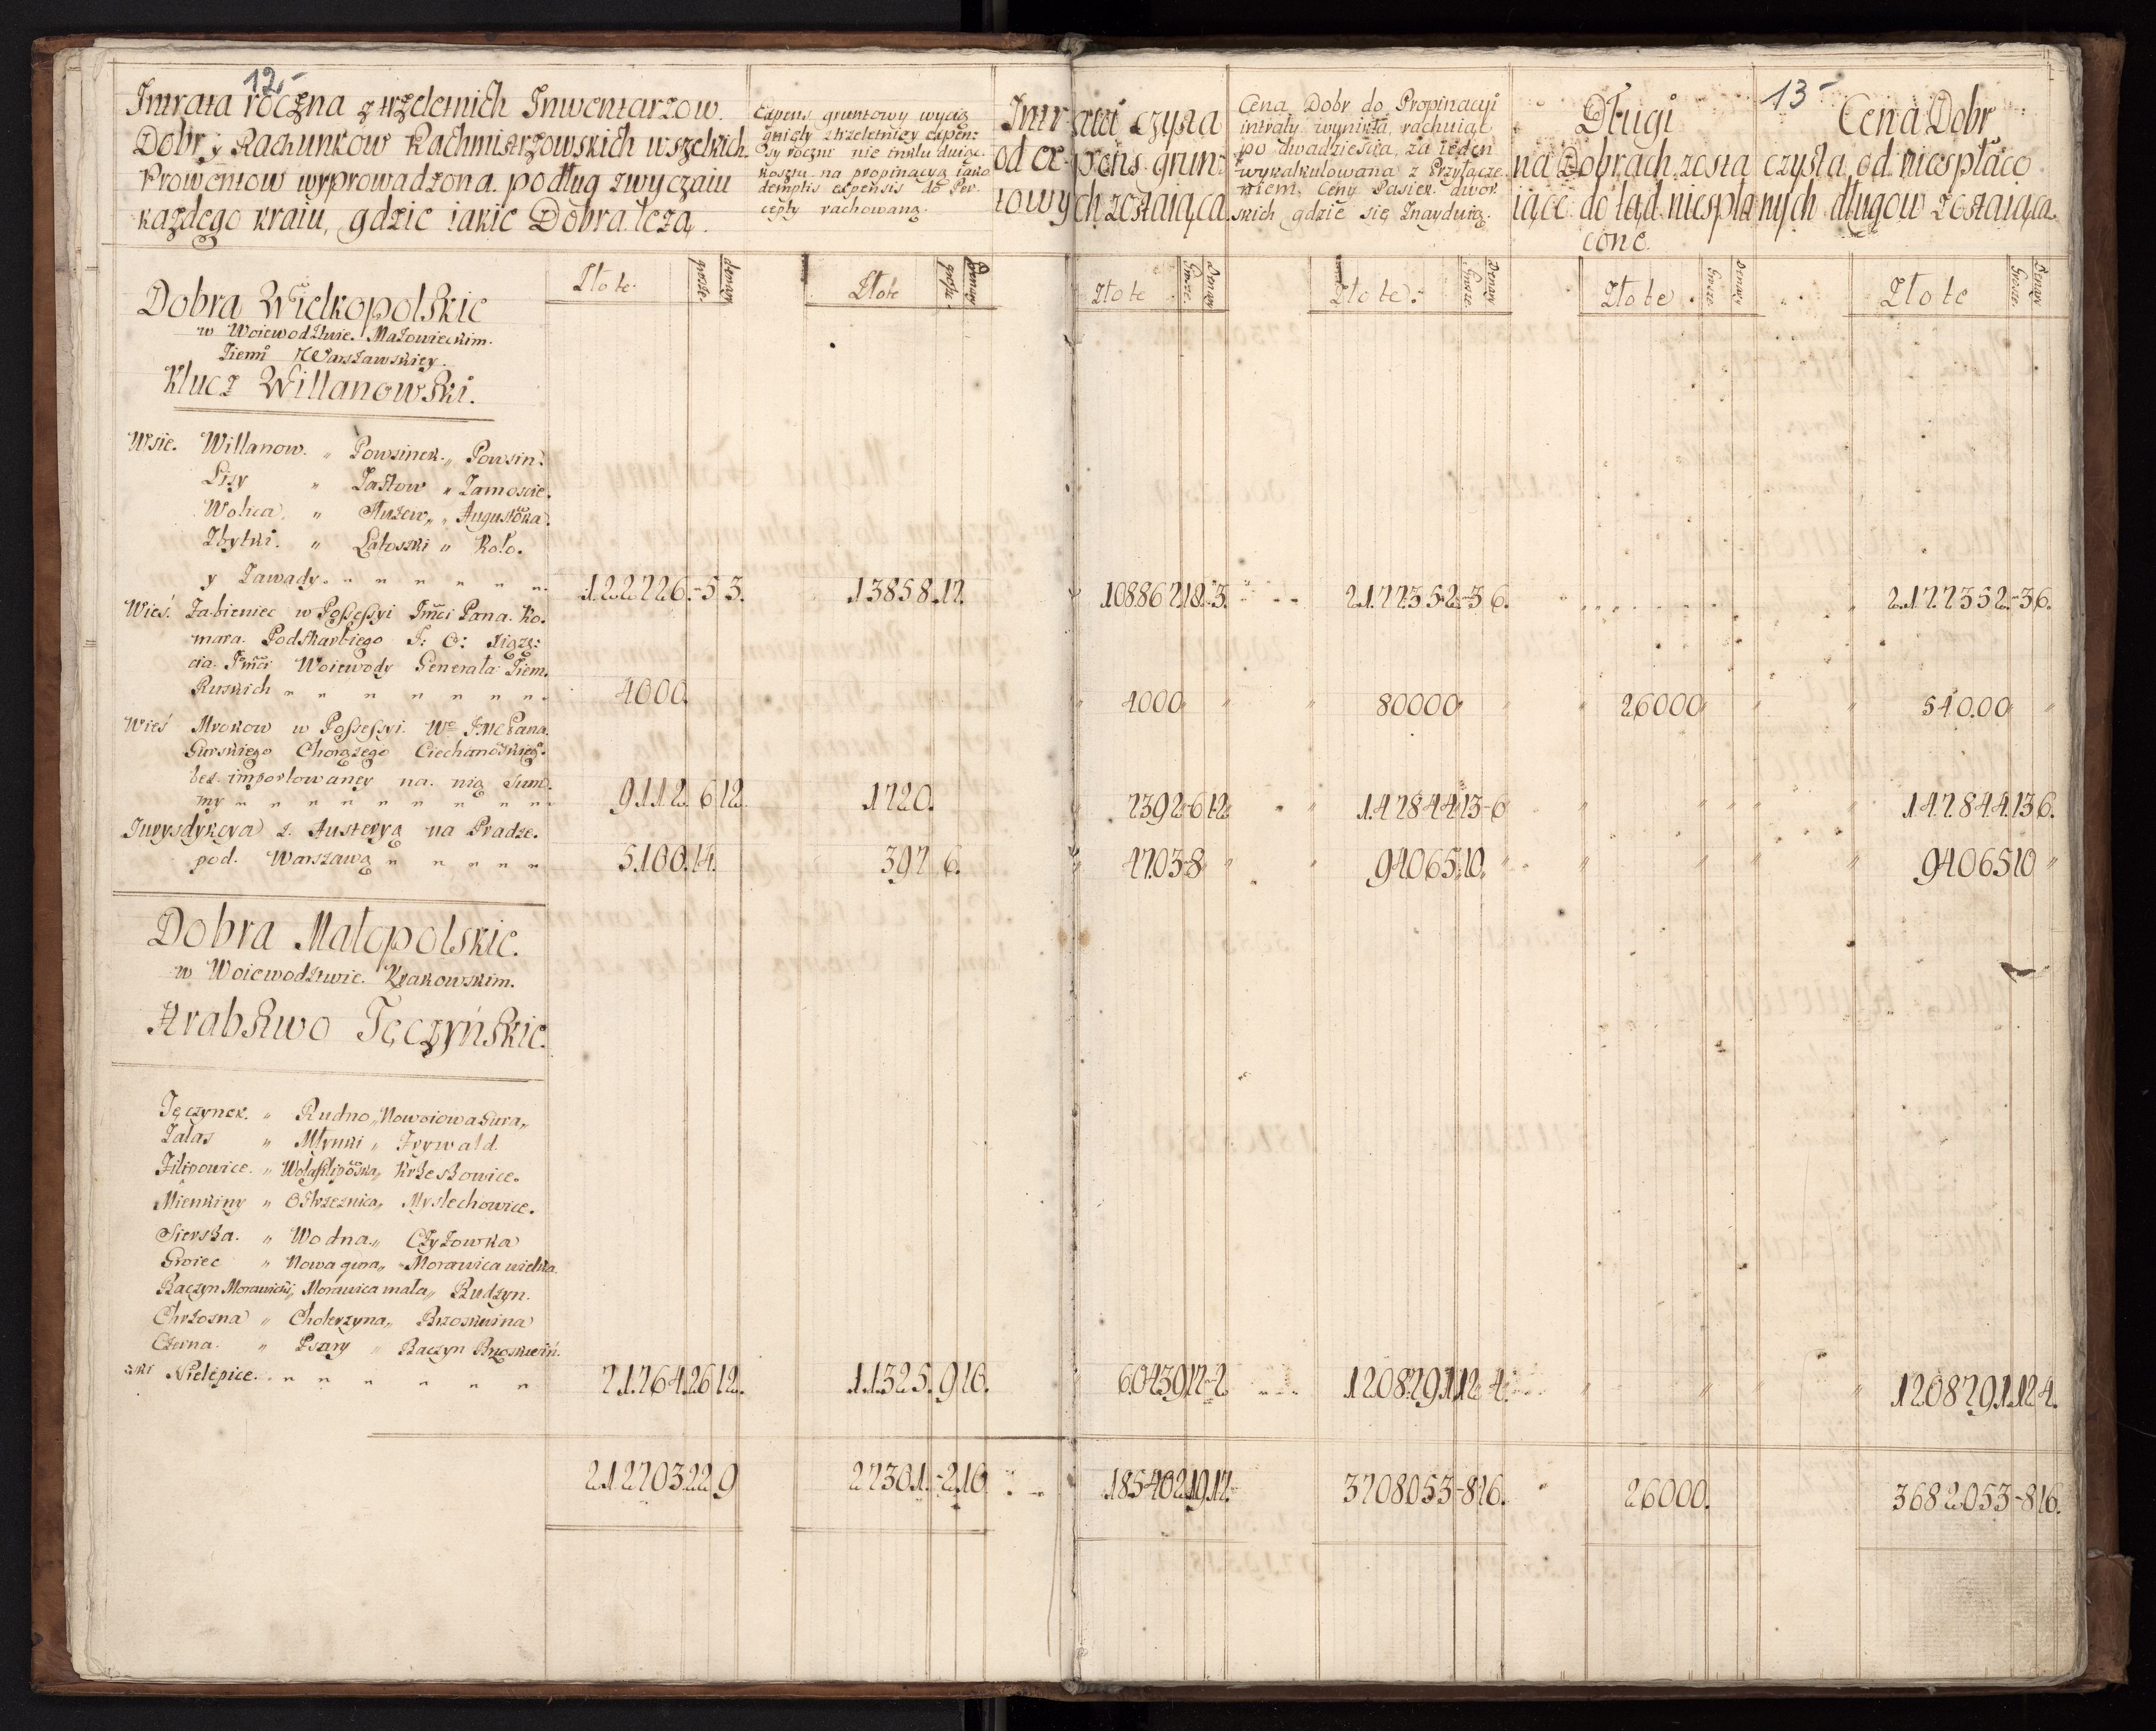 12
Intrata roczna z trzeletnich Inwentarzow
Dobr y Rachunkow Rachmistrzowskich wszelkich
Prowentow wyprowadzona podług zwyczaiu
kazdego kraiu, gdzie iakie Dobra lezą.
Expens gruntowy wycią
gnięty z trzeletniey expen:
sy roczne nie inkluduiąc
kosztu na propinacyą iako
demptis expensis de Per:
cepty rachowaną.
Intrata czysta
od expens grun:
towych zostaiąca
Cena Dobr do Propinacyi
intraty wynikła, rachuiąc
po dwadziescia za ieden
wykalkulowana z Przyłącze
niem Ceny Pasiek dwor
skich gdzie się znayduią.
Długi
na Dobrach zosta
iące do tąd niespła
cone.
13
Cena Dobr
czysta od niespłaco
nych długow zostaiąca.
Złote grosze denar Złote grosze Denar Złote Grosze Denar Złote Grosze Denar Złote Grosze Denar Złote Grosze Denar
Dobra Wielkopolskie
w Woiewodztwie Mazowieckim
Ziemi Warszawskiey
Klucz Willanowski.
Wsie. Willanow. " Powsinek " Powsin.
Lisy " Zastow " Zamoscie.
Wolica " Służew " Augustöka
Zbytki. " Latoszki " Koło.
y Zawady. " " " " " " 122726.-5 3. 13858.17. 108862.18.3. 2177352.-3 6. 2177352.-3 6.
Wieś. Jabieniec w Possessyi Jmci Pana Ko.
mara Podskarbiego J: O: Xiązę:
cia Jmci Woiewody Generała Ziem.
Ruskich " " " " " " 4000. 4000 80000 26000 54000
Wieś Mrokow w Possessyi We JMCPana
Gurskiego Chorązego Ciechanöskieg
bez importowaney na nią Sum.
my " " " " " " " " 9112. 6 12. 1720. 7392-6 12. 147844 13-6 147844.13 6.
Jurysdykcya z Austeryą na Pradze.
pod. Warszawą " " " " " 5100.14. 397 6. 4703-8 94065.10. 94065 10
Dobra Małopolskie.
w Woiewodztwie Krakowskim.
Hrabstwo Tęczyńskie.
Tęczynek. " Rudno " Nowoiowa Gura "
Zalas " Młynki " Frywald.
Filipowice. " Wola filipöska " Krzeszowice.
Mienkiny " Ostrzeznica " Myslechowice.
Siersza. " Wodna " Czyzowka
Groiec " Nowa gura " Morawica wielka
Baczyn Morawicki, Morawica mała " Rudzyn.
Chrzosna " Cholerzyna " Brzoskwina
Czerna. " Psary " Baczyn Brzoskwiń.
ski Nielepice. " " " " " " 71764 26 12. 11325. 9 10. 60439 17-2. 1208791 12 4. 1208791.12 4.
212703 22 9 27301.-2 10. 185402 19 17. 3708053-8 16. 26000. 3682053-8 16.